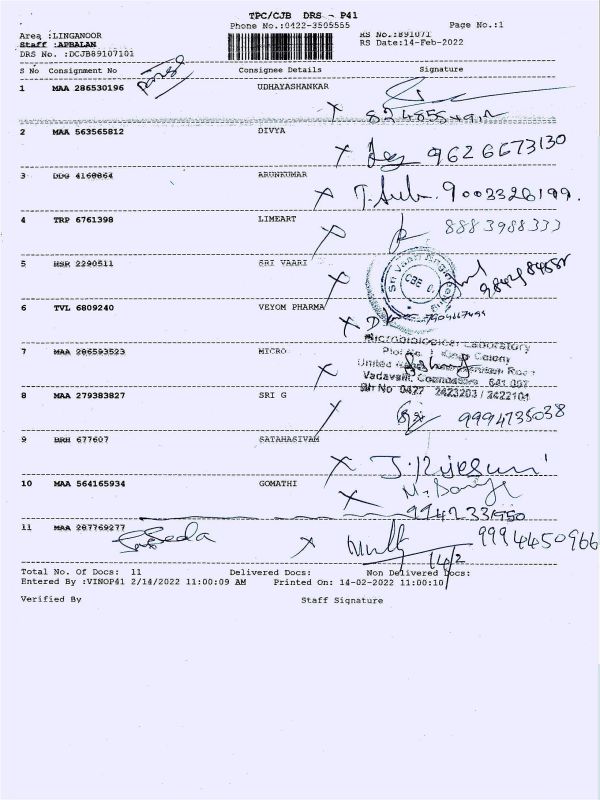 TPC/CJB DRS - P41
Phone No.:0422-3505555 Page No.:1
Area :LINGANOOR RS No.:891071
Staff :APBALAN RS Date:14-Feb-2022
DRS No. :DCJB89107101
S No Consignment No Consignee Details Signature
1 MAA 286530196 UDHAYASHANKAR
2 MAA 563565812 DIVYA
9626673130
3 DDG 4168864 ARUNKUMAR
9003326199.
4 TRP 6761398 LIMEART
8883988333
5 HSR 2290511 SRI VAARI
Sri Vaari
CBE
6 TVL 6809240 VEYOM PHARMA
Microbiological Laboratory
7 MAA 286593523 MICRO
Plot No. 1 Kings Colony
United
Vadavalli, Coimbatore 641 007
8 MAA 279383827 SRI G
Ph No 0422 2423203 / 2422104
9994735038
9 BRH 677607 SATAHASIVAM
10 MAA 564165934 GOMATHI
11 MAA 287769277
9994450966
14/2
Total No. Of Docs: 11 Delivered Docs: Non Delivered Docs:
Entered By :VINOP41 2/14/2022 11:00:09 AM Printed On: 14-02-2022 11:00:10
Verified By Staff Signature